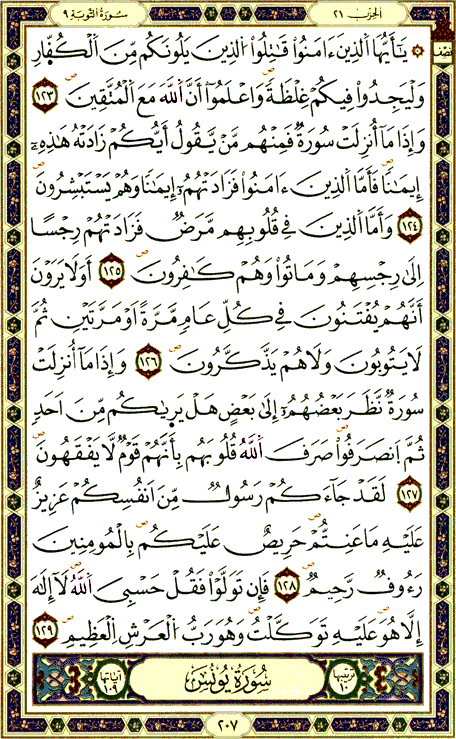 سُورَةُ التَّوْبَةِ ٩ الحِزْب ٢١
يَٰٓأَيُّهَا اَلذِينَ ءَامَنُواْ قَٰتِلُواْ اُلذِينَ يَلُونَكُم مِّنَ اَلْكُفّ۪ارِ
وَلْيَجِدُواْ فِيكُمْ غِلْظَةٗ وَاعْلَمُوٓاْ أَنَّ اَللَّهَ مَعَ اَلْمُتَّقِينَ ١٢٣
وَإِذَا مَآ أُنزِلَتْ سُورَةٞ فَمِنْهُم مَّنْ يَّقُولُ أَيُّكُمْ زَادَتْهُ هَٰذِهِۦٓ
إِيمَٰناٗ فَأَمَّا اَلذِينَ ءَامَنُواْ فَزَادَتْهُمُۥٓ إِيمَٰناٗ وَهُمْ يَسْتَبْشِرُونَ
١٢٤ وَأَمَّا اَلذِينَ فِے قُلُوبِهِم مَّرَضٞ فَزَادَتْهُمْ رِجْساً
اِلَىٰ رِجْسِهِمْ وَمَاتُواْ وَهُمْ كَٰفِرُونَ ١٢٥ اَوَلَا يَرَوْنَ
أَنَّهُمْ يُفْتَنُونَ فِے كُلِّ عَامٖ مَّرَّةً اَوْ مَرَّتَيْنِ ثُمَّ
لَا يَتُوبُونَ وَلَا هُمْ يَذَّكَّرُونَ ١٢٦ وَإِذَا مَآ أُنزِلَتْ
سُورَةٞ نَّظَرَ بَعْضُهُمُۥٓ إِلَىٰ بَعْضٍ هَلْ يَر۪يٰكُم مِّنَ اَحَدٖ
ثُمَّ اَنصَرَفُواْ صَرَفَ اَللَّهُ قُلُوبَهُم بِأَنَّهُمْ قَوْمٞ لَّا يَفْقَهُونَ
١٢٧ لَقَدْ جَآءَكُمْ رَسُولٞ مِّنَ اَنفُسِكُمْ عَزِيزٌ
عَلَيْهِ مَا عَنِتُّمْ حَرِيصٌ عَلَيْكُم بِالْمُومِنِينَ
رَءُوفٞ رَّحِيمٞ ١٢٨ فَإِن تَوَلَّوْاْ فَقُلْ حَسْبِيَ اَللَّهُ لَآ إِلَٰهَ
إِلَّا هُوَ عَلَيْهِ تَوَكَّلْتُ وَهُوَ رَبُّ اُلْعَرْشِ اِلْعَظِيمِ ١٢٩
ترتيبها ١٠ سُورَةُ يُونُسَ آياتها ١٠٩
٢٠٧